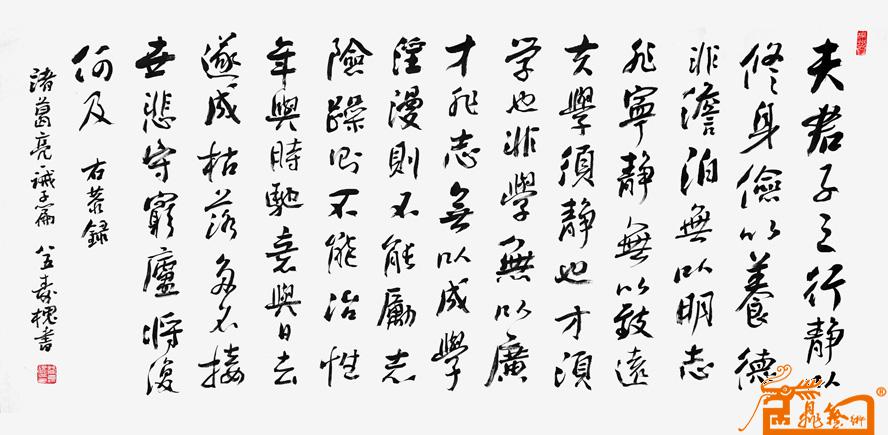 夫君子之行静以
修身儉以養德
非澹泊無以明志
非寧静無以致遠
夫學須静也才須
学也非學無以廣
才非志無以成學
淫漫則不能勵志
險躁则不能冶性
年與時馳意與日去
遂成枯落多不接
世悲守窮廬將復
何及 右恭録
諸葛亮诫子篇 寿槐書